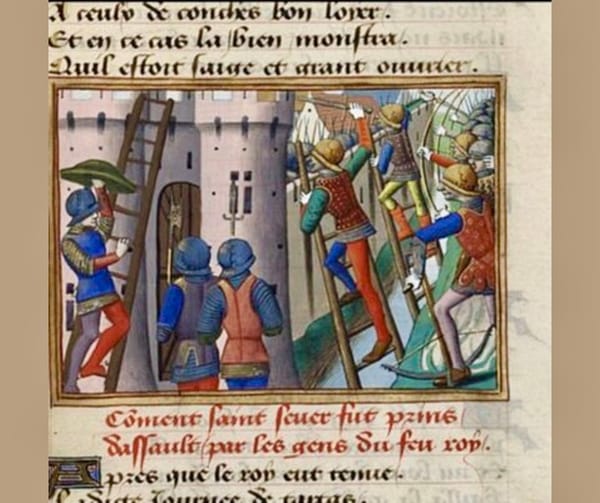 A ceulx de conches bon loyer.
Et en ce cas la bien monstra.
Quil estoit saige et grant ouurier.
Cōment saint seuer fut prins
dassault par les gens du feu roy.
Apres que le roy eut tenue.
La dicte Journee de targas.